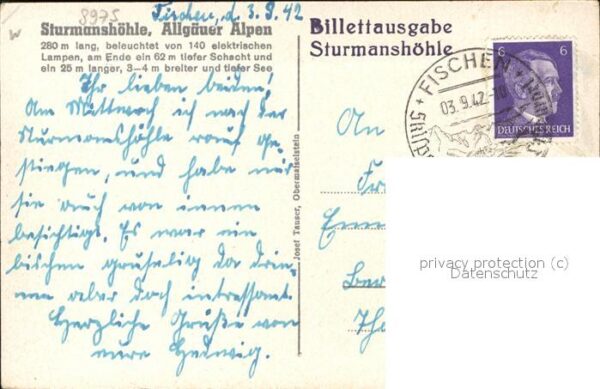 8975
w
Fischen, d. 3.9.42
Sturmanshöhle, Allgäuer Alpen
280 m lang, beleuchtet von 140 elektrischen
Lampen, am Ende ein 62 m tiefer Schacht und
ein 25 m langer, 3–4 m breiter und tiefer See
Ihr lieben beiden!
Am Mittwoch ich nach der
Sturmanshöhle rauf ge-
stiegen, und habe mir
sie auch von innen
besichtigt. Es war ein
bischen gruselig da drin-
nen aber doch intressant.
Herzliche Grüße von
eure Hedwig.
Josef Tauser, Obermaiselstein
Billettausgabe
Sturmanshöhle
FISCHEN
03.9.42.-10
6 6
DEUTSCHES REICH
An
Fr
Emm
Ber
Th
privacy protection (c)
Datenschutz